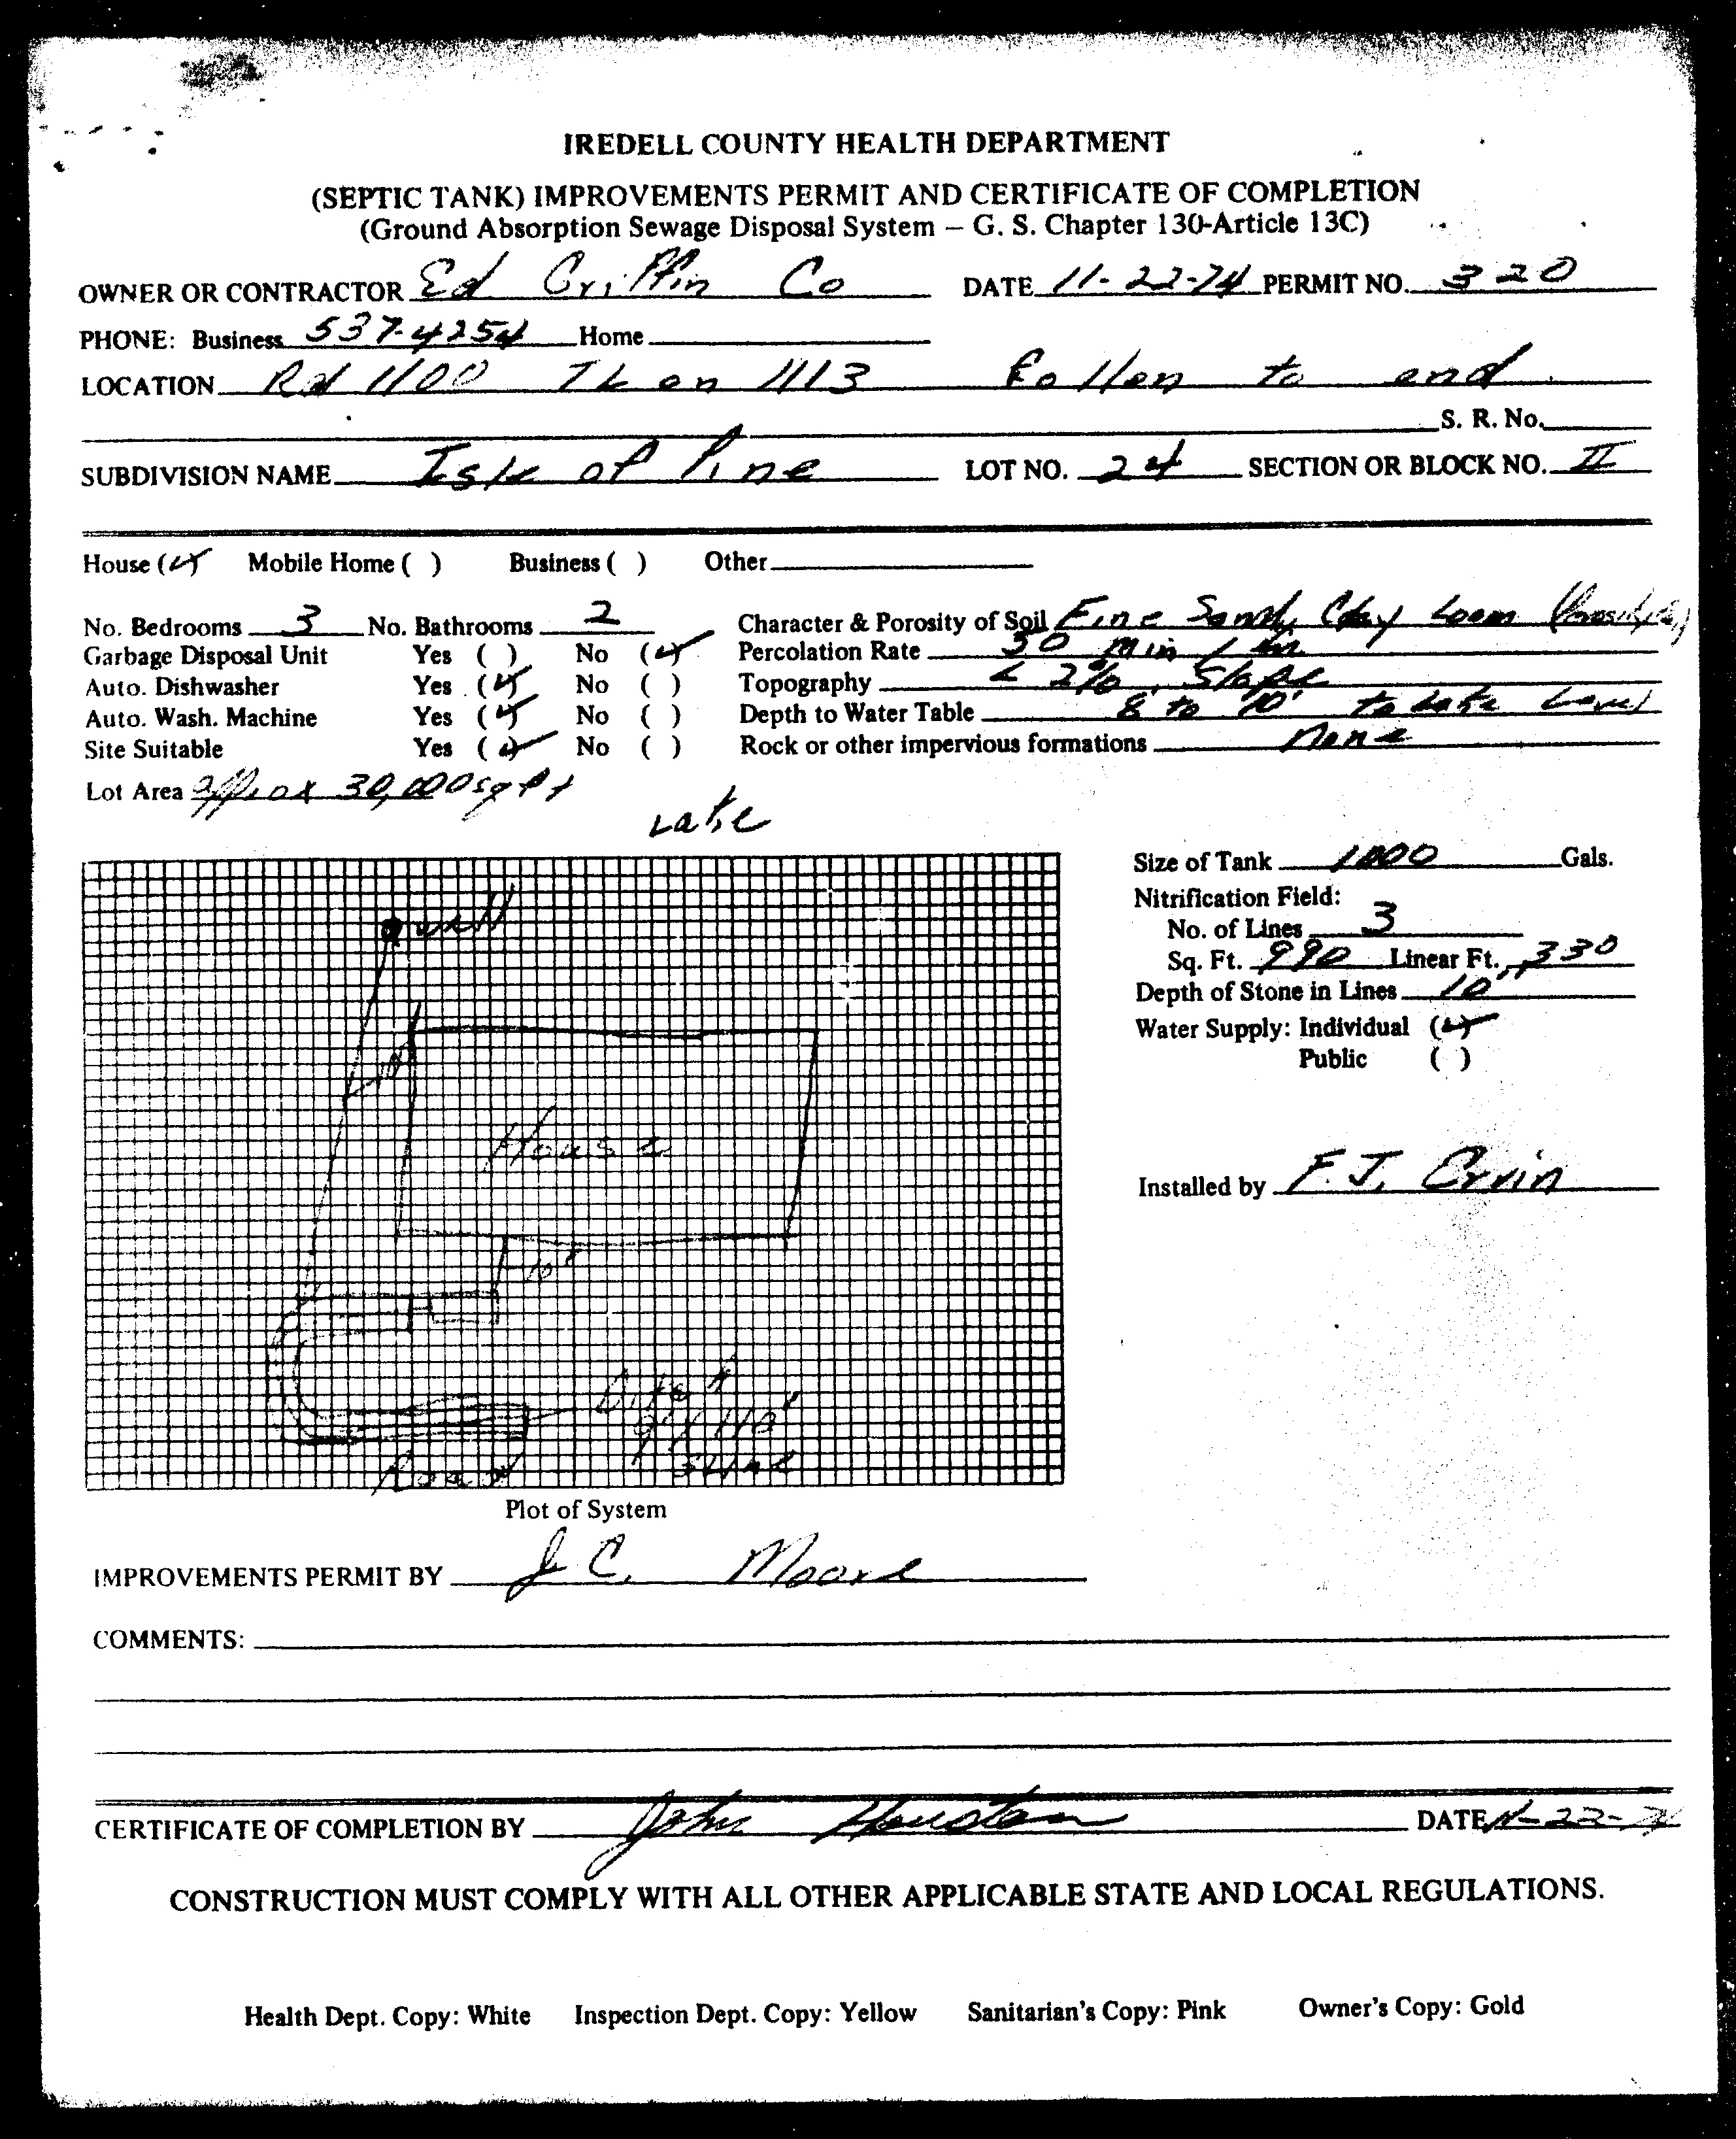 IREDELL COUNTY HEALTH DEPARTMENT
(SEPTIC TANK) IMPROVEMENTS PERMIT AND CERTIFICATE OF COMPLETION
(Ground Absorption Sewage Disposal System – G. S. Chapter 130-Article 13C)
OWNER OR CONTRACTOR Ed Griffin Co DATE 11-22-74 PERMIT NO. 320
PHONE: Business 537-4254 Home
LOCATION Rd 1100 on 1113 to end
S. R. No.
SUBDIVISION NAME Isle of Pine LOT NO. 24 SECTION OR BLOCK NO. II
House (✓) Mobile Home ( ) Business ( ) Other
No. Bedrooms 3 No. Bathrooms 2 Character & Porosity of Soil Fine Sandy Clay Loam
Garbage Disposal Unit Yes ( ) No (✓) Percolation Rate 30 min / in
Auto. Dishwasher Yes (✓) No ( ) Topography < 2% Slope
Auto. Wash. Machine Yes (✓) No ( ) Depth to Water Table 8 to 10' to Lake Level
Site Suitable Yes (✓) No ( ) Rock or other impervious formations None
Lot Area approx 30,000 sq ft
Lake
Size of Tank 1000 Gals.
Nitrification Field:
well
No. of Lines 3
Sq. Ft. 990 Linear Ft. 330
Depth of Stone in Lines 10"
Water Supply: Individual (✓)
Public ( )
House
Installed by F. J. Ervin
10'
Ditch
Road
Plot of System
IMPROVEMENTS PERMIT BY J. C. Moore
COMMENTS:
CERTIFICATE OF COMPLETION BY John Houston DATE 11-22-74
CONSTRUCTION MUST COMPLY WITH ALL OTHER APPLICABLE STATE AND LOCAL REGULATIONS.
Health Dept. Copy: White Inspection Dept. Copy: Yellow Sanitarian's Copy: Pink Owner's Copy: Gold